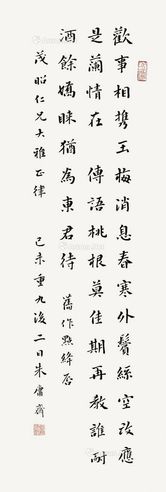 歡事相携玉梅消息春寒外鬢絲空改應
是蘭情在 傳語桃根莫佳期再教誰耐
酒餘嬌睞猶為東君待 舊作點絳唇
茂昭仁兄大雅正律 己未重九後二日朱庸齋